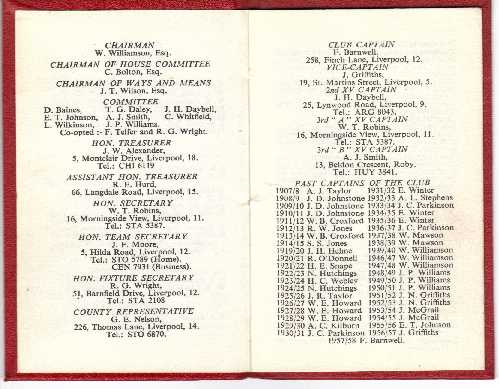 CHAIRMAN
W. Williamson, Esq.
CHAIRMAN OF HOUSE COMMITTEE
C. Bolton, Esq.
CHAIRMAN OF WAYS AND MEANS
J. T. Wilson, Esq.
COMMITTEE
D. Baines, T. G. Daley, J. H. Daybell,
E. T. Johnson, A. J. Smith, C. Whitfield,
L. Wilkinson, J. P. Williams.
Co-opted :- F. Telfer and R. G. Wright.
HON. TREASURER
J. W. Alexander,
5, Montclair Drive, Liverpool, 18.
Tel.: CHI 6119
ASSISTANT HON. TREASURER
R. E. Hurd,
66, Langdale Road, Liverpool, 15.
HON. SECRETARY
W. T. Robins,
16, Morningside View, Liverpool, 11.
Tel.: STA 5387.
HON. TEAM SECRETARY
J. F. Moore,
5, Hilda Road, Liverpool, 12.
Tel.: STO 5789 (Home).
CEN 7931 (Business).
HON. FIXTURE SECRETARY
R. G. Wright,
51, Barnfield Drive, Liverpool, 12.
Tel.: STA 2108
COUNTY REPRESENTATIVE
G. E. Nelson,
226, Thomas Lane, Liverpool, 14.
Tel.: STO 6870.
CLUB CAPTAIN
F. Barnwell,
258, Finch Lane, Liverpool, 12.
VICE-CAPTAIN
J. Griffiths,
19, St. Martins Street, Liverpool, 5.
2nd XV CAPTAIN
J. H. Daybell,
25, Lynwood Road, Liverpool, 9.
Tel.: ARG 8043.
3rd "A" XV CAPTAIN
W. T. Robins,
16, Morningside View, Liverpool, 11.
Tel.: STA 5387.
3rd "B" XV CAPTAIN
A. J. Smith,
13, Beldon Crescent, Roby.
Tel.: HUY 3841.
PAST CAPTAINS OF THE CLUB
1907/8 A. J. Taylor 1931/32 E. Winter
1908/9 J. D. Johnstone 1932/33 A. L. Stephens
1909/10 J. D. Johnstone 1933/34 J. C. Parkinson
1910/11 J. D. Johnstone 1934/35 E. Winter
1911/12 W. B. Croxford 1935/36 E. Winter
1912/13 R. W. Jones 1936/37 J. C. Parkinson
1913/14 W. B. Croxford 1937/38 W. Mawson
1914/15 S. S. Jones 1938/39 W. Mawson
1919/20 J. H. Hulme 1939/40 W. Williamson
1920/21 R. O'Donnell 1946/47 W. Williamson
1921/22 H. E. Snape 1947/48 W. Williamson
1922/23 N. Hutchings 1948/49 J. P. Williams
1923/24 H. C. Webley 1949/50 J. P. Williams
1924/25 N. Hutchings 1950/51 J. P. Williams
1925/26 J. R. Taylor 1951/52 J. N. Griffiths
1926/27 W. E. Howard 1952/53 J. N. Griffiths
1927/28 W. E. Howard 1953/54 J. McGrail
1928/29 W. E. Howard 1954/55 J. McGrail
1929/30 A. C. Kilburn 1955/56 E. T. Johnson
1930/31 J. C. Parkinson 1956/57 J. Griffiths
1957/58 F. Barnwell.